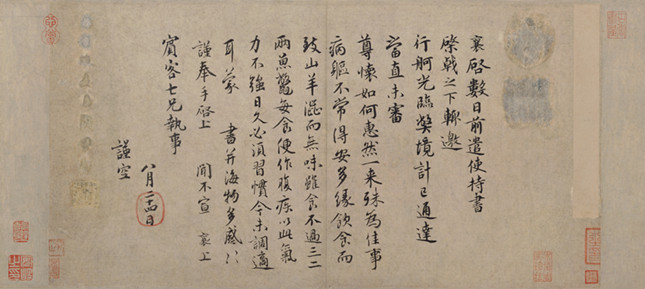 襄啓數日前遣使持書
棨戟之下輒邀
行舸光臨弊境計已通達
當直未審
尊懷如何惠然一來殊為佳事
病軀不常得安多緣飲食而
致山羊澀而無味雖食不過三二
兩魚鱉每食便作腹疾以此氣
力不強日久必須習慣今未調適
耳蒙 書并海物多感〻
謹奉手啓上 聞不宣 襄上
賓客七兄執事
八月二十四日
謹空